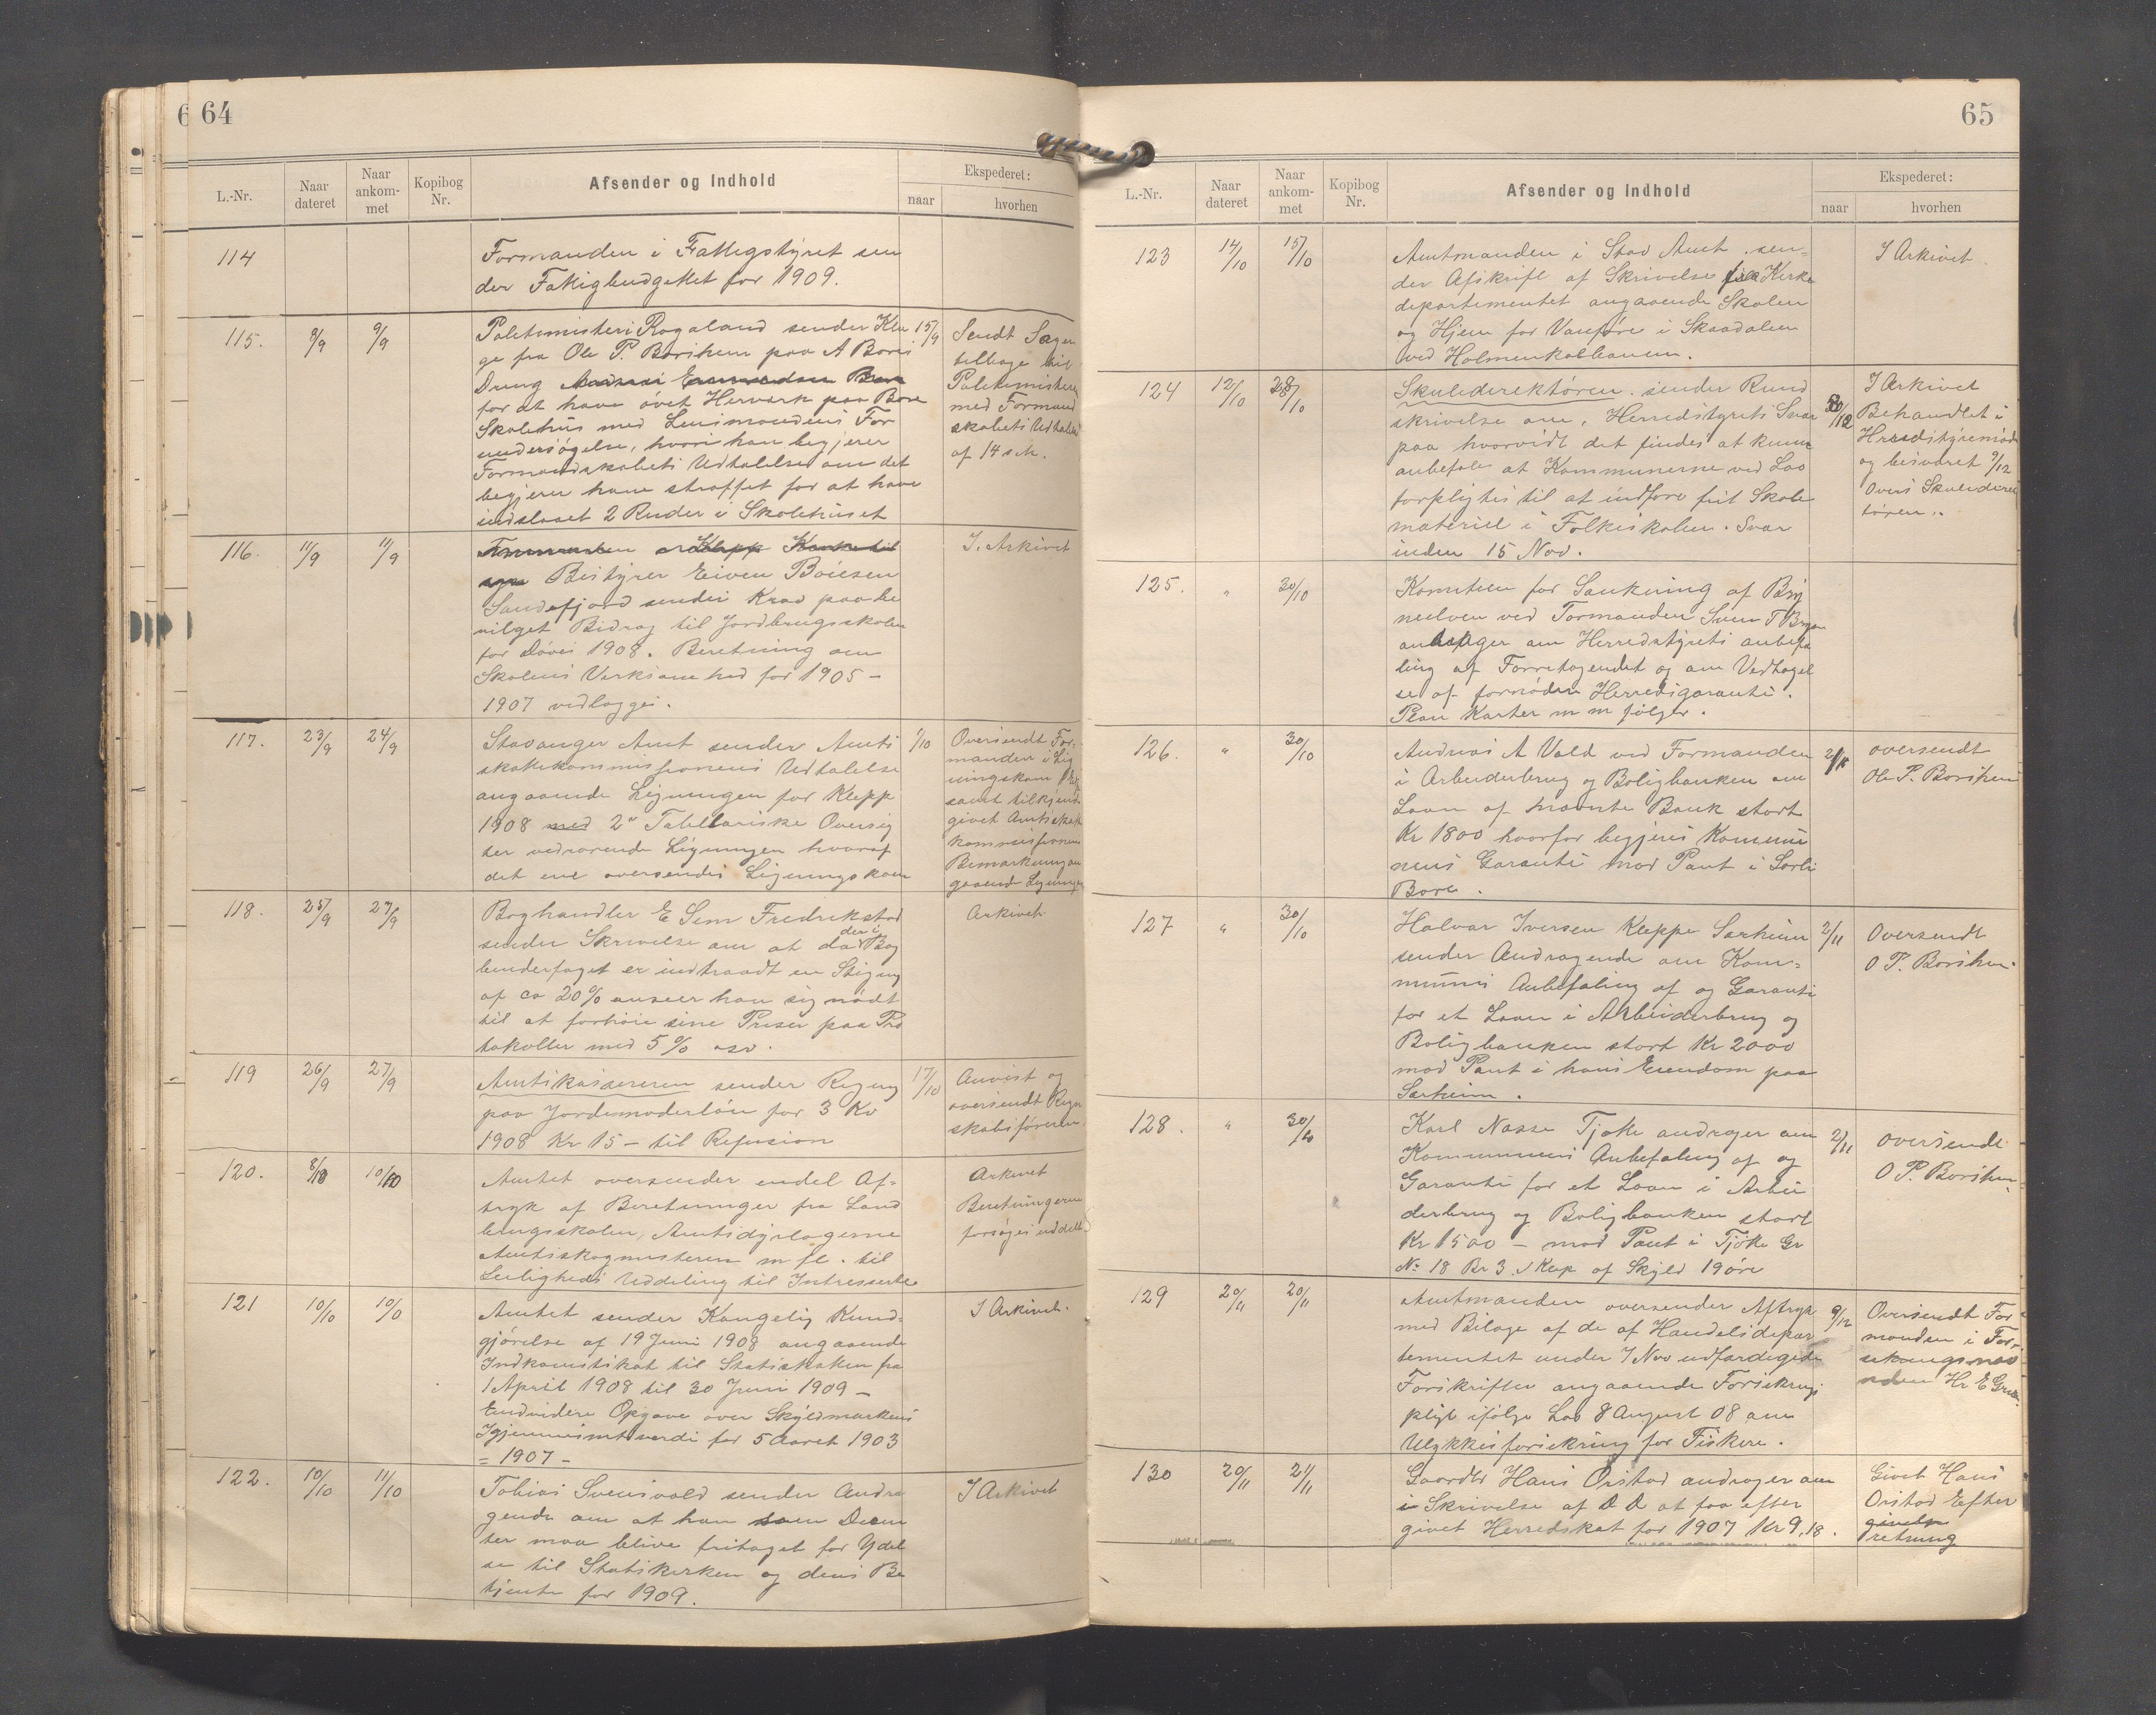 64
L.-Nr.
Naar dateret
Naar ankom-met
Kopibog Nr.
Afsender og Indhold
Ekspederet:
naar
hvorhen
114
Formanden i Fattigstyret sen
der Fattigbudgettet for 1909.
115. 8/9 9/9
Politimisteri Rogaland sender Kla 15/9
ge fra Ole P. Borsheim paa A Bores
Dreng
for at have övet Herverk paa Bore
Skolehus med Lensmandens For
undersögelse, hvori han begjerer
Formandskabets Udtalelse om det
begjerer ham straffet for at have
indslaaet 2 Ruder i Skolehuset
Sendt Sagen
tilbage til
Politimisteren
med Formand
skabets Udtalelse
af 14 sch.
116. 11/9 11/9
Bestyrer Eiven Boiesen
Sandefjord sender Krav paa be
vilget Bidrag til Jordbrugsskolen
for Döve 1908. Beretning om
Skolens Verksomhed for 1905 –
1907 vedlegges.
I. Arkivet
117. 23/9 24/9
Stavanger Amt sender Amts 1/10
skattekommissionens Udtalelse
angaaende Ligningen for Klepp
1908 med 2de Tabellariske Oversig
ter vedrørende Ligningen hvoraf
det ene oversendes Ligningskom
Oversendt For-
manden i Lig
ningskom
samt tilkjende
givet Amtsskatte
kommissionens
Bemerkning an
gaaende Ligningen
118. 25/9 27/9
Boghandler E Sem Fredrikstad
sender Skrivelse om at da der i Bog
binderfaget er indtraadt en Stigning
af ca 20% anseer han sig nödt
til at forhöie sine Priser paa Pro
tokoller med 5% osv.
Arkivet
119 26/9 27/9
Amtskassereren sender Regning 17/10
paa Jordemoderlön for 3 Kv
1908 Kr 15 – til Refusion
Anvist og
oversendt Regn
skabsföreren.
120. 8/10 10/10
Amtet oversender endel Af-
tryk af Beretninger fra Land
brugsskolen, Amtsdyrlægerne
Amtsskogmesteren m fl. til
Leilighedsi Uddeling til Intresserte
Arkivet
Beretningerne
forsöges uddelt
121 10/10 10/10
Amtet sender Kongelig Kund-
gjörelse af 19 Juni 1908 angaaende
Indkomstskat til Statskassen fra
1 April 1908 til 30 Juni 1909 –
Endvidere Opgave over Skyldmarkens
Igjennemsnitsverdi for 5 Aaret 1903
= 1907 –
I Arkivet.
122. 10/10 11/10
Tobias Svensvold sender Andra
gende om at han som Dissen
ter maa blive fritaget for Ydel
se til Statskirken og dens Be
tjente for 1909.
I Arkivet
65
L.-Nr.
Naar dateret
Naar ankom-met
Kopibog Nr.
Afsender og Indhold
Ekspederet:
naar
hvorhen
123 14/10 15/10
Amtmanden i Stav Amt sen-
der Afskrift af Skrivelse fra Kirke
departementet angaaende Skolen
og Hjem for Vanföre i Skaadalen
ved Holmenkolbanen.
I Arkivet
124 12/10 28/10
Skoledirektören sender Rund
skrivelse om, Herredstyrets Svar
paa hvorvidt det findes at kunne
anbefales at Kommunerne ved Lov
forpligtes til at indföre frit Skole
materiel i Folkeskolen. Svar
inden 15 Nov.
I Arkivet
Behandlet i
Herredstyremöde
og besvaret 9/12
Overs Skoledirek
tören.
125. " 30/10
Komiteen for Senkning af Bry
neelven ved Formanden Sven T Bryne
andrager om Herredstyrets anbefa
ling af Forretagendet og om Vedtagel
se af fornöden Herredsgaranti.
Plan Karter m m fölger.
126. " 30/10
Andreas A Vold ved Formanden
i Arbeiderbrug og Boligbanken om
Laan af nævnte Bank stort
Kr 1800 hvorfor begjeres Kommu
nens Garanti mod Pant i
Bore.
oversendt
Ole P. Borsheim
127 " 30/10
Halvar Iversen Kleppe Sørheim 2/11
sender Andragende om Kom=
munes Anbefaling af og Garanti
for et Laan i Arbeiderbrug og
Boligbanken stort Kr 2000
mod Pant i hans Eiendom paa
Sørheim.
Oversendt
O P. Borsheim.
128. " 30/10
Karl Næsse Tjøtte andrager om 2/11
Kommunens Anbefaling af og
Garanti for et Laan i Arbei
derbrug og Boligbanken stort
Kr 1500 – mod Pant i Tjötte Gr
No 18 Br 3. i Klep af Skyld 19 öre
oversendt
O P. Borsheim.
129 20/11 20/11
Amtmanden oversender Aftryk 9/12
med Bilage af de af Handelsdepar
tementet under 7 Nov udfærdigede
Forskrifter angaaende Forsikrings
pligt ifölge Lov 8 August 08 om
Ulykkesforsikring for Fiskere.
Oversendt For
manden i For-
130 20/11 21/11
Gaardbr Hans Orstad andrager om
i Skrivelse af D D at faa efter
givet Herredskat for 1907 Kr 9,18.
Givet Hans
Orstad Efter
retning